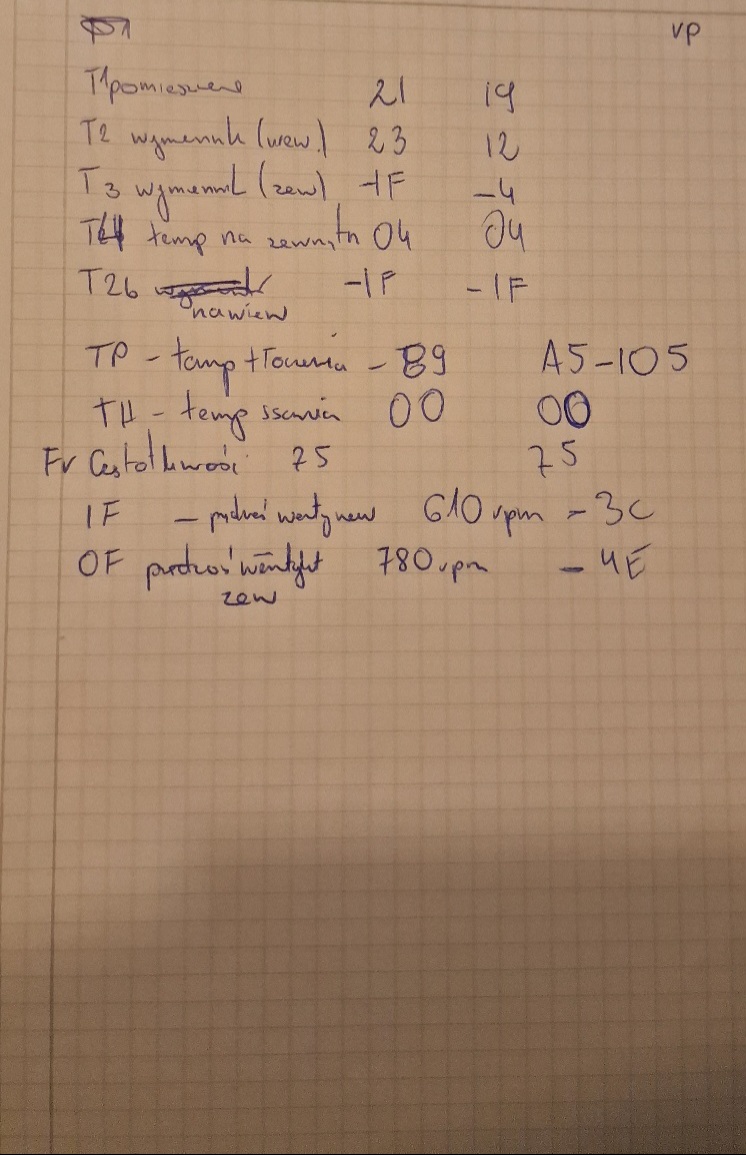 VP
T1 pomieszczenie 21 19
T2 wymiennik (wew.) 23 12
T3 wymiennik (zew) -1F -4
T4 temp na zewnątrz 04 04
T2b -1F -1F
nawiew
TP - temp tłoczenia - B9 A5-105
TH - temp ssania 00 00
Fr Częstotliwość 75 75
IF - prędkość went wew 610 rpm - 3C
OF prędkość wentylat 780 rpm - 4E
zew